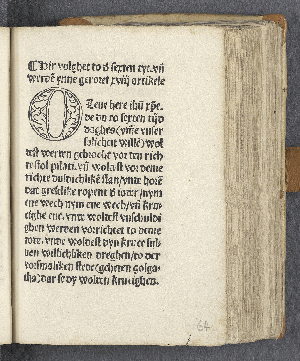 Hir volghet to d sexten tyt. vñ
werdẽ ynne geroret xviij artikele
O Leue here ihũ xp̃e.
de du to sexten tijd
daghes (vm̃e vnser
salichen wille) wol
test werden gebrocht vor den rich
testol pilati. vñ woldest vor deme
richte duldichlikẽ stan/vnde horẽ
dat greselike ropent d ioden/nym
ene wech nym ene wech/vñ kru-
tighe ene. vnde woldest vnschuldi
ghen werden vorrichtet to deme
dode. vnde woldest dyn kruce sul-
uen willichliken dreghen/to der
vorsmaliken stede (geheten golga-
tha) dar se dy wolden krucighen.
64